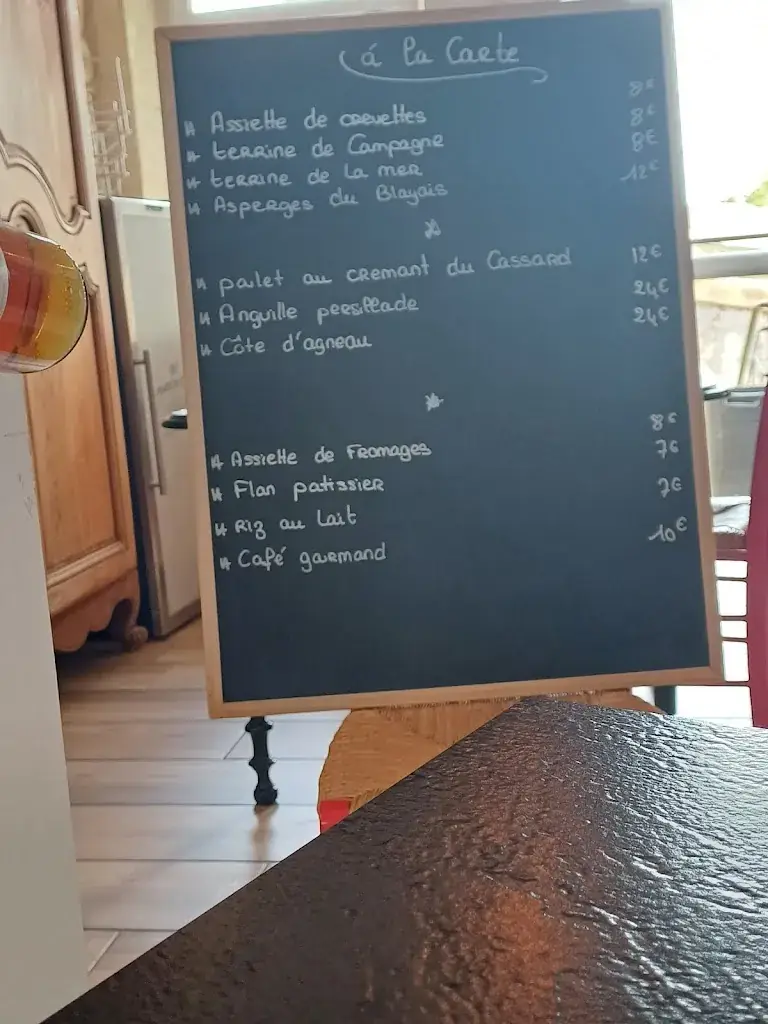 á la Carte
# Assiette de crevettes 8€
# terrine de Campagne 8€
# terrine de la mer 8€
# Asperges du Blayais 12€
# palet au cremant du Cassard 12€
# Anguille persillade 24€
# Côte d'agneau 24€
# Assiette de Fromages 8€
# Flan patissier 7€
# Riz au lait 7€
# Café gourmand 10€